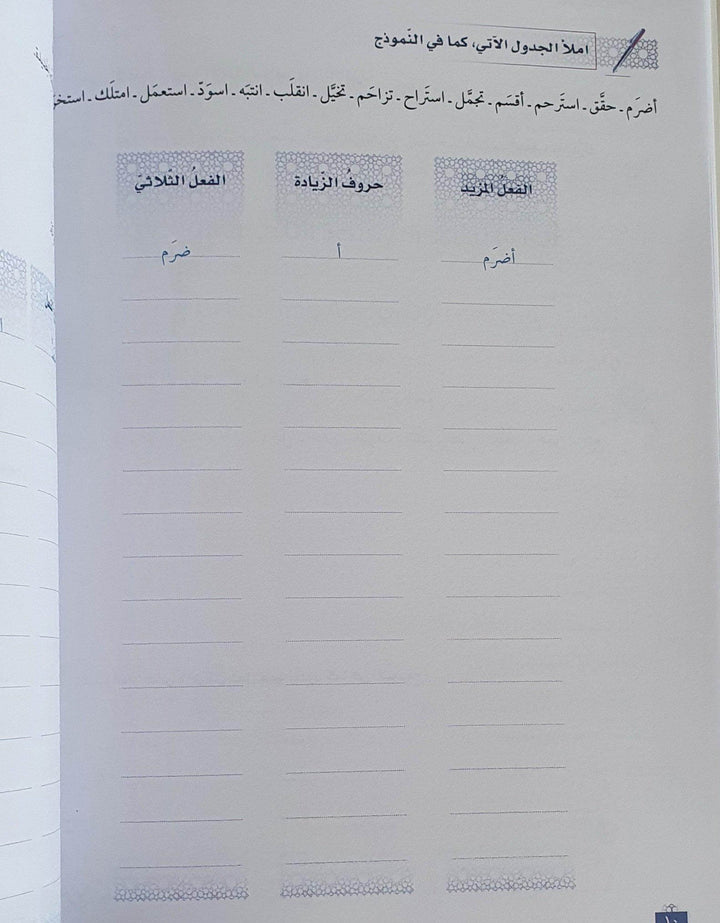 املأ الجدول الآتي، كما في النّموذج
أضرَم ـ حقَّق ـ استَرحم ـ أقسَم ـ تجمَّل ـ استَراح ـ تزاحَم ـ تخيَّل ـ انقلَب ـ انتبَه ـ اسوَدّ ـ استعمَل ـ امتلَك ـ
الفعلُ المزيد حروفُ الزّيادة الفعلُ الثّلاثيّ
أضرَم أ ضرَم
١٠